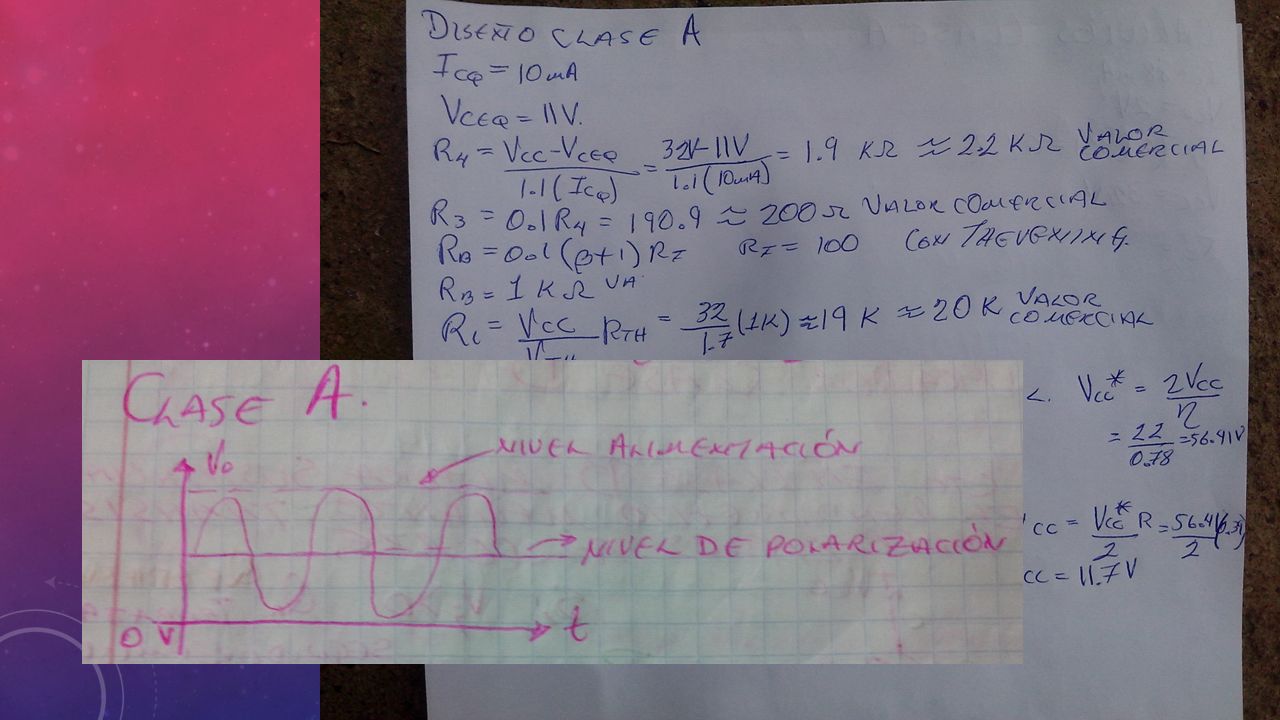 DISEÑO CLASE A
ICQ = 10mA
VCEQ = 11V.
R4 = VCC-VCEQ / 1.1(ICQ) = 32V-11V / 1.1(10mA) = 1.9 KΩ ≈ 2.2 KΩ VALOR COMERCIAL
R3 = 0.1R4 = 190.9 ≈ 200Ω VALOR COMERCIAL
RB = 0.1(β+1)RE RE = 100 CON
RB = 1KΩ VA
R1 = VCC / VTH RTH = 32 / 1.7 (1K) ≈ 19K ≈ 20K VALOR COMERCIAL
VCC* = 2VCC / η
= 22 / 0.78 = 56.41V
CC = VCC* / 2 R = 56.41 / 2
CC = 11.7V
CLASE A.
Vo
NIVEL ALIMENTACIÓN
NIVEL DE POLARIZACIÓN
0 V
t